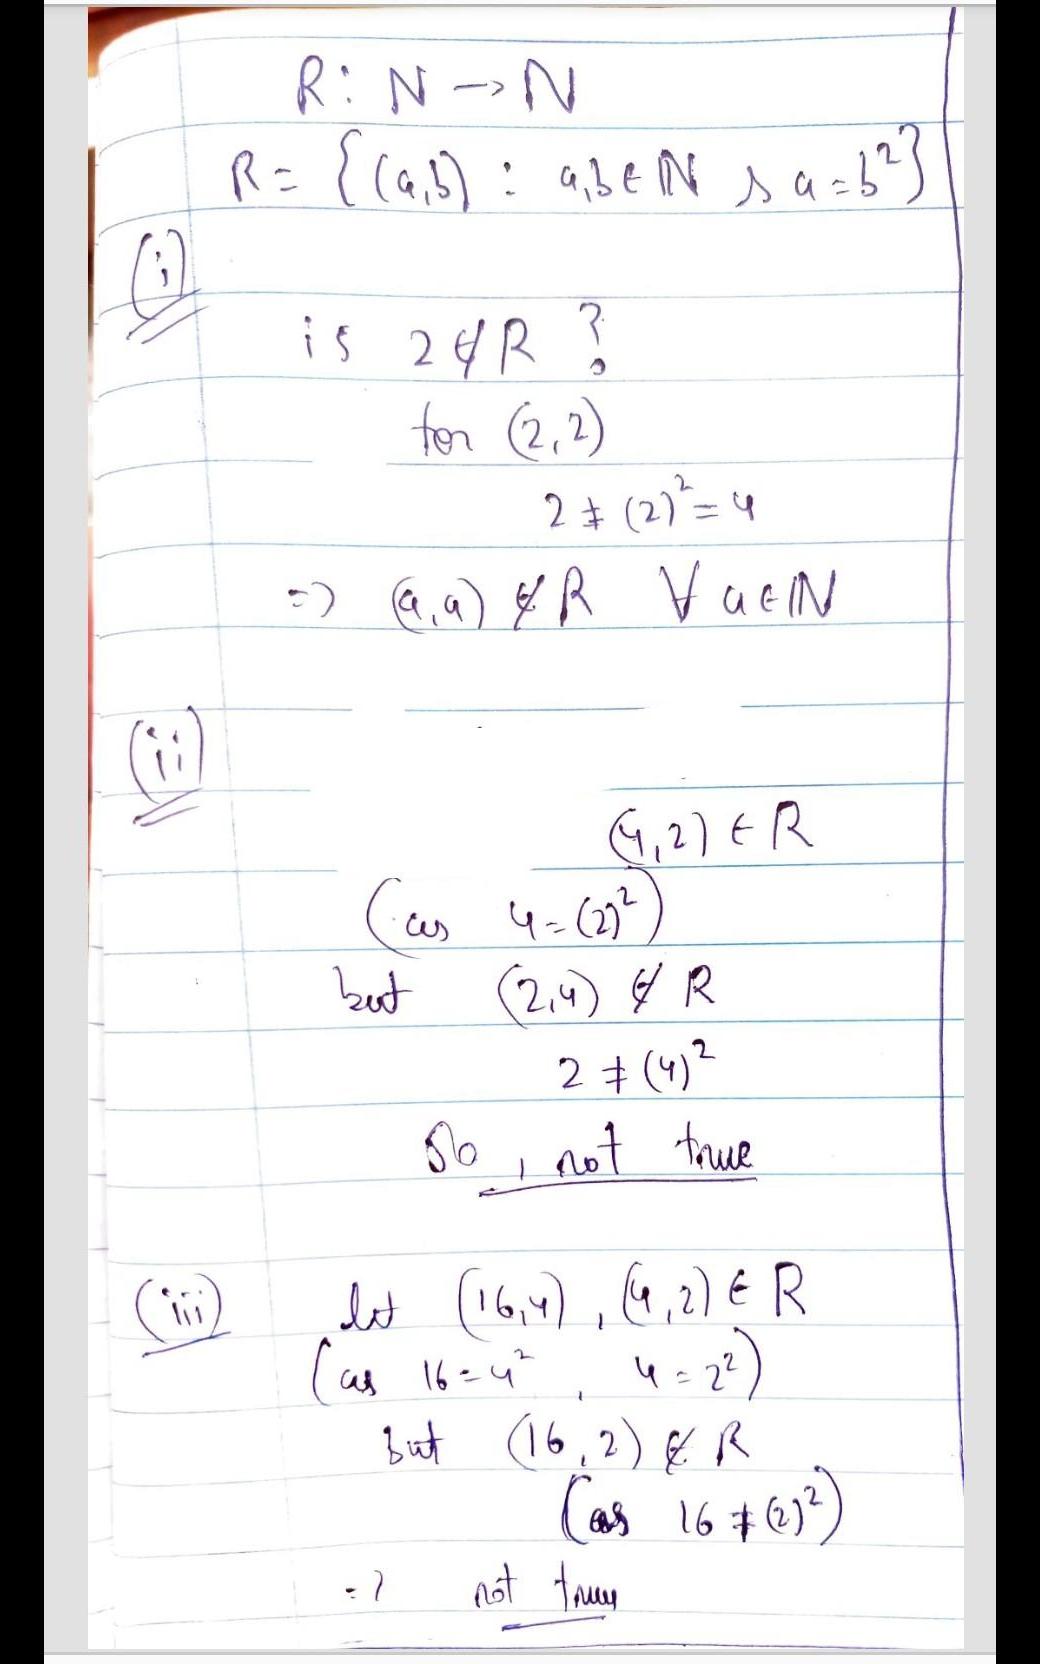 R : N → N
R = {(a,b) : a,b ∈ N , a = b²}
(i)
is 2 ∉ R ?
for (2,2)
2 ≠ (2)² = 4
=> (a,a) ∉ R ∀ a ∈ N
(ii)
(4,2) ∈ R
(as 4 = (2)²)
but (2,4) ∉ R
2 ≠ (4)²
So, not true
(iii) let (16,4) , (4,2) ∈ R
(as 16 = 4² , 4 = 2²)
but (16,2) ∉ R
(as 16 ≠ (2)²)
=> not true